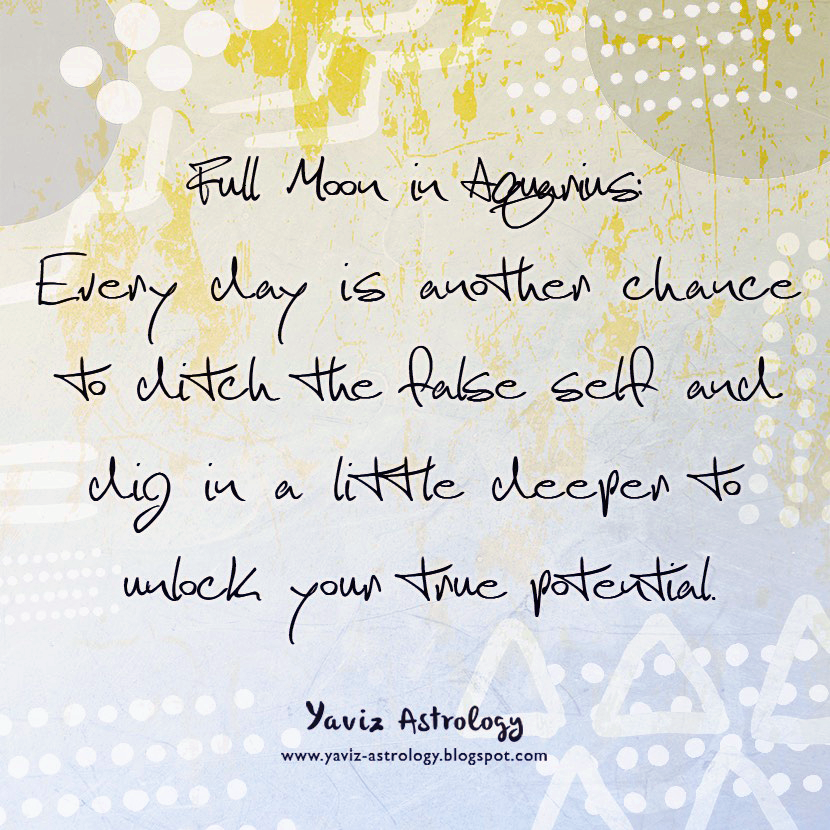 Full Moon in Aquarius:
Every day is another chance
to ditch the false self and
dig in a little deeper to
unlock your true potential.
Yaviz Astrology
www.yaviz-astrology.blogspot.com